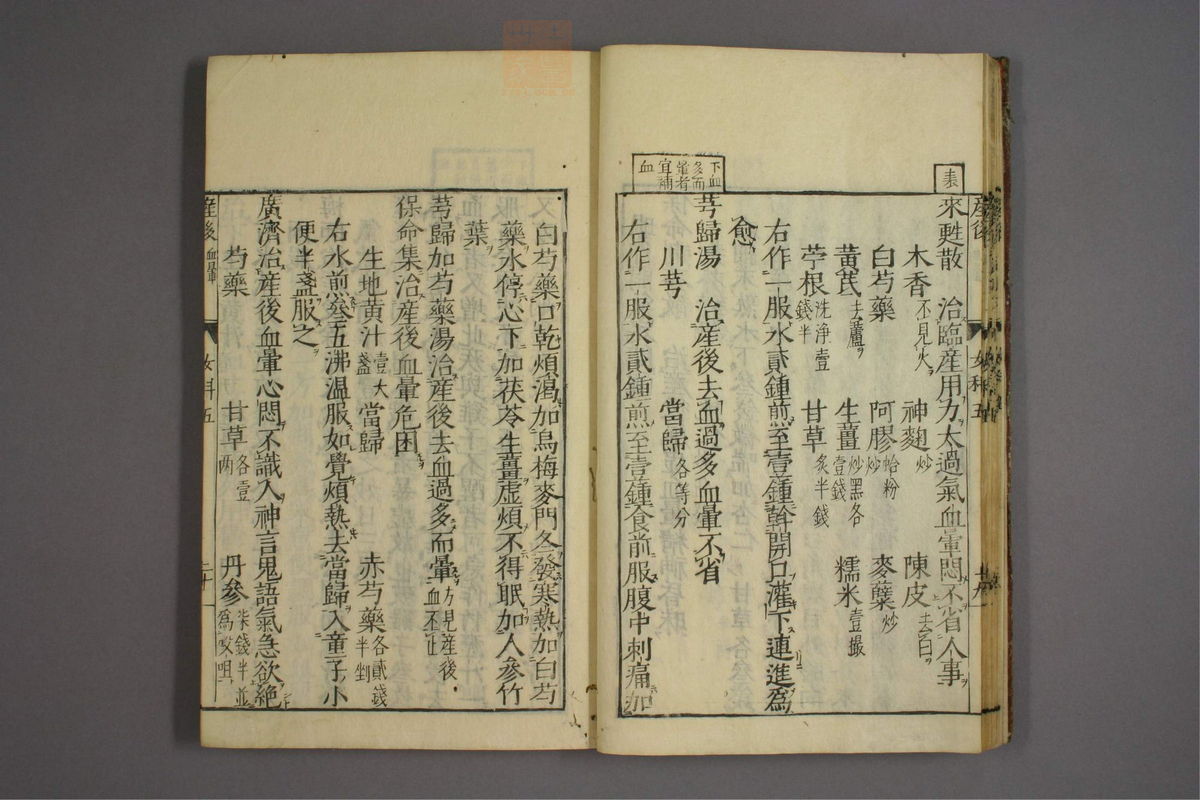 表
來甦散　治臨産用力太過氣血暈悶不省人事
木香不見火　神麴炒　陳皮去白
白芍藥　阿膠蛤粉炒　麥蘖炒
黃芪去蘆　生薑炒黑各壹錢　糯米壹撮
苧根洗淨壹錢半　甘草炙半錢
右作一服水貳鍾煎至壹鍾幹開口灌下連進爲
愈
下血多而暈者宜補血
芎歸湯　治産後去血過多血暈不省
川芎　當歸各等分
右作一服水貳鍾煎至壹鍾食前服腹中刺痛加
白芍藥口乾煩渴加烏梅麥門冬發寒熱加白芍
藥水停心下加茯苓生薑虛煩不得眠加人參竹
葉
芎歸加芍藥湯治産後去血過多而暈方見産後血不止
保命集治産後血暈危困
生地黃汁壹大盞　當歸　赤芍藥各貳錢半剉
右水煎叄五沸溫服如覺煩熱去當歸入童子小
便半盞服之
廣濟治産後血暈心悶不識人神言鬼語氣急欲絕
芍藥　甘草各壹两　丹參柒錢半並爲㕮咀
産後　血暈　女科五　二十